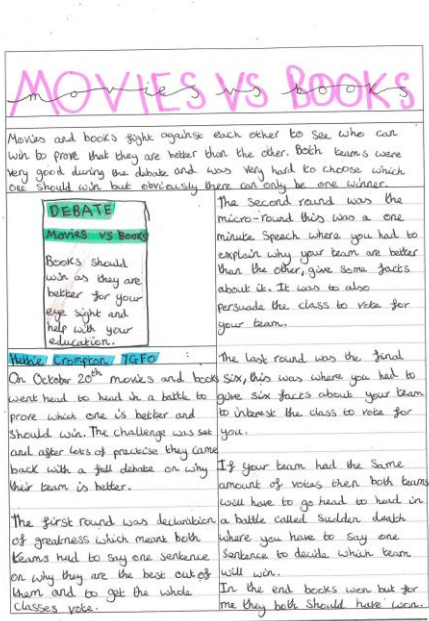 MOVIES VS BOOKS
movies vs books
Movies and books fight against each other to see who can
win to prove that they are better than the other. Both teams were
very good during the debate and was very hard to choose which
one should win but obviously there can only be one winner.
DEBATE
Movies VS Books
Books should
win as they are
better for your
eye sight and
help with your
education.
Hattie Crompton 7GFO
On October 20th movies and books
went head to head in a battle to
prove which one is better and
should win. The challenge was set
and after lots of practise they came
back with a full debate on why
their team is better.
The first round was decleration
of greatness which meant both
teams had to say one sentence
on why they are the best out of
them and to get the whole
classes vote.
The second round was the
micro-round this was a one
minute speech where you had to
explain why your team are better
than the other, give some facts
about it. It was to also
persuade the class to vote for
your team.
The last round was the final
six, this was where you had to
give six facts about your team
to interest the class to vote for
you.
If your team had the same
amount of votes then both teams
will have to go head to head in
a battle called Sudden death
where you have to say one
sentence to decide which team
will win.
In the end books won but for
me they both should have won.